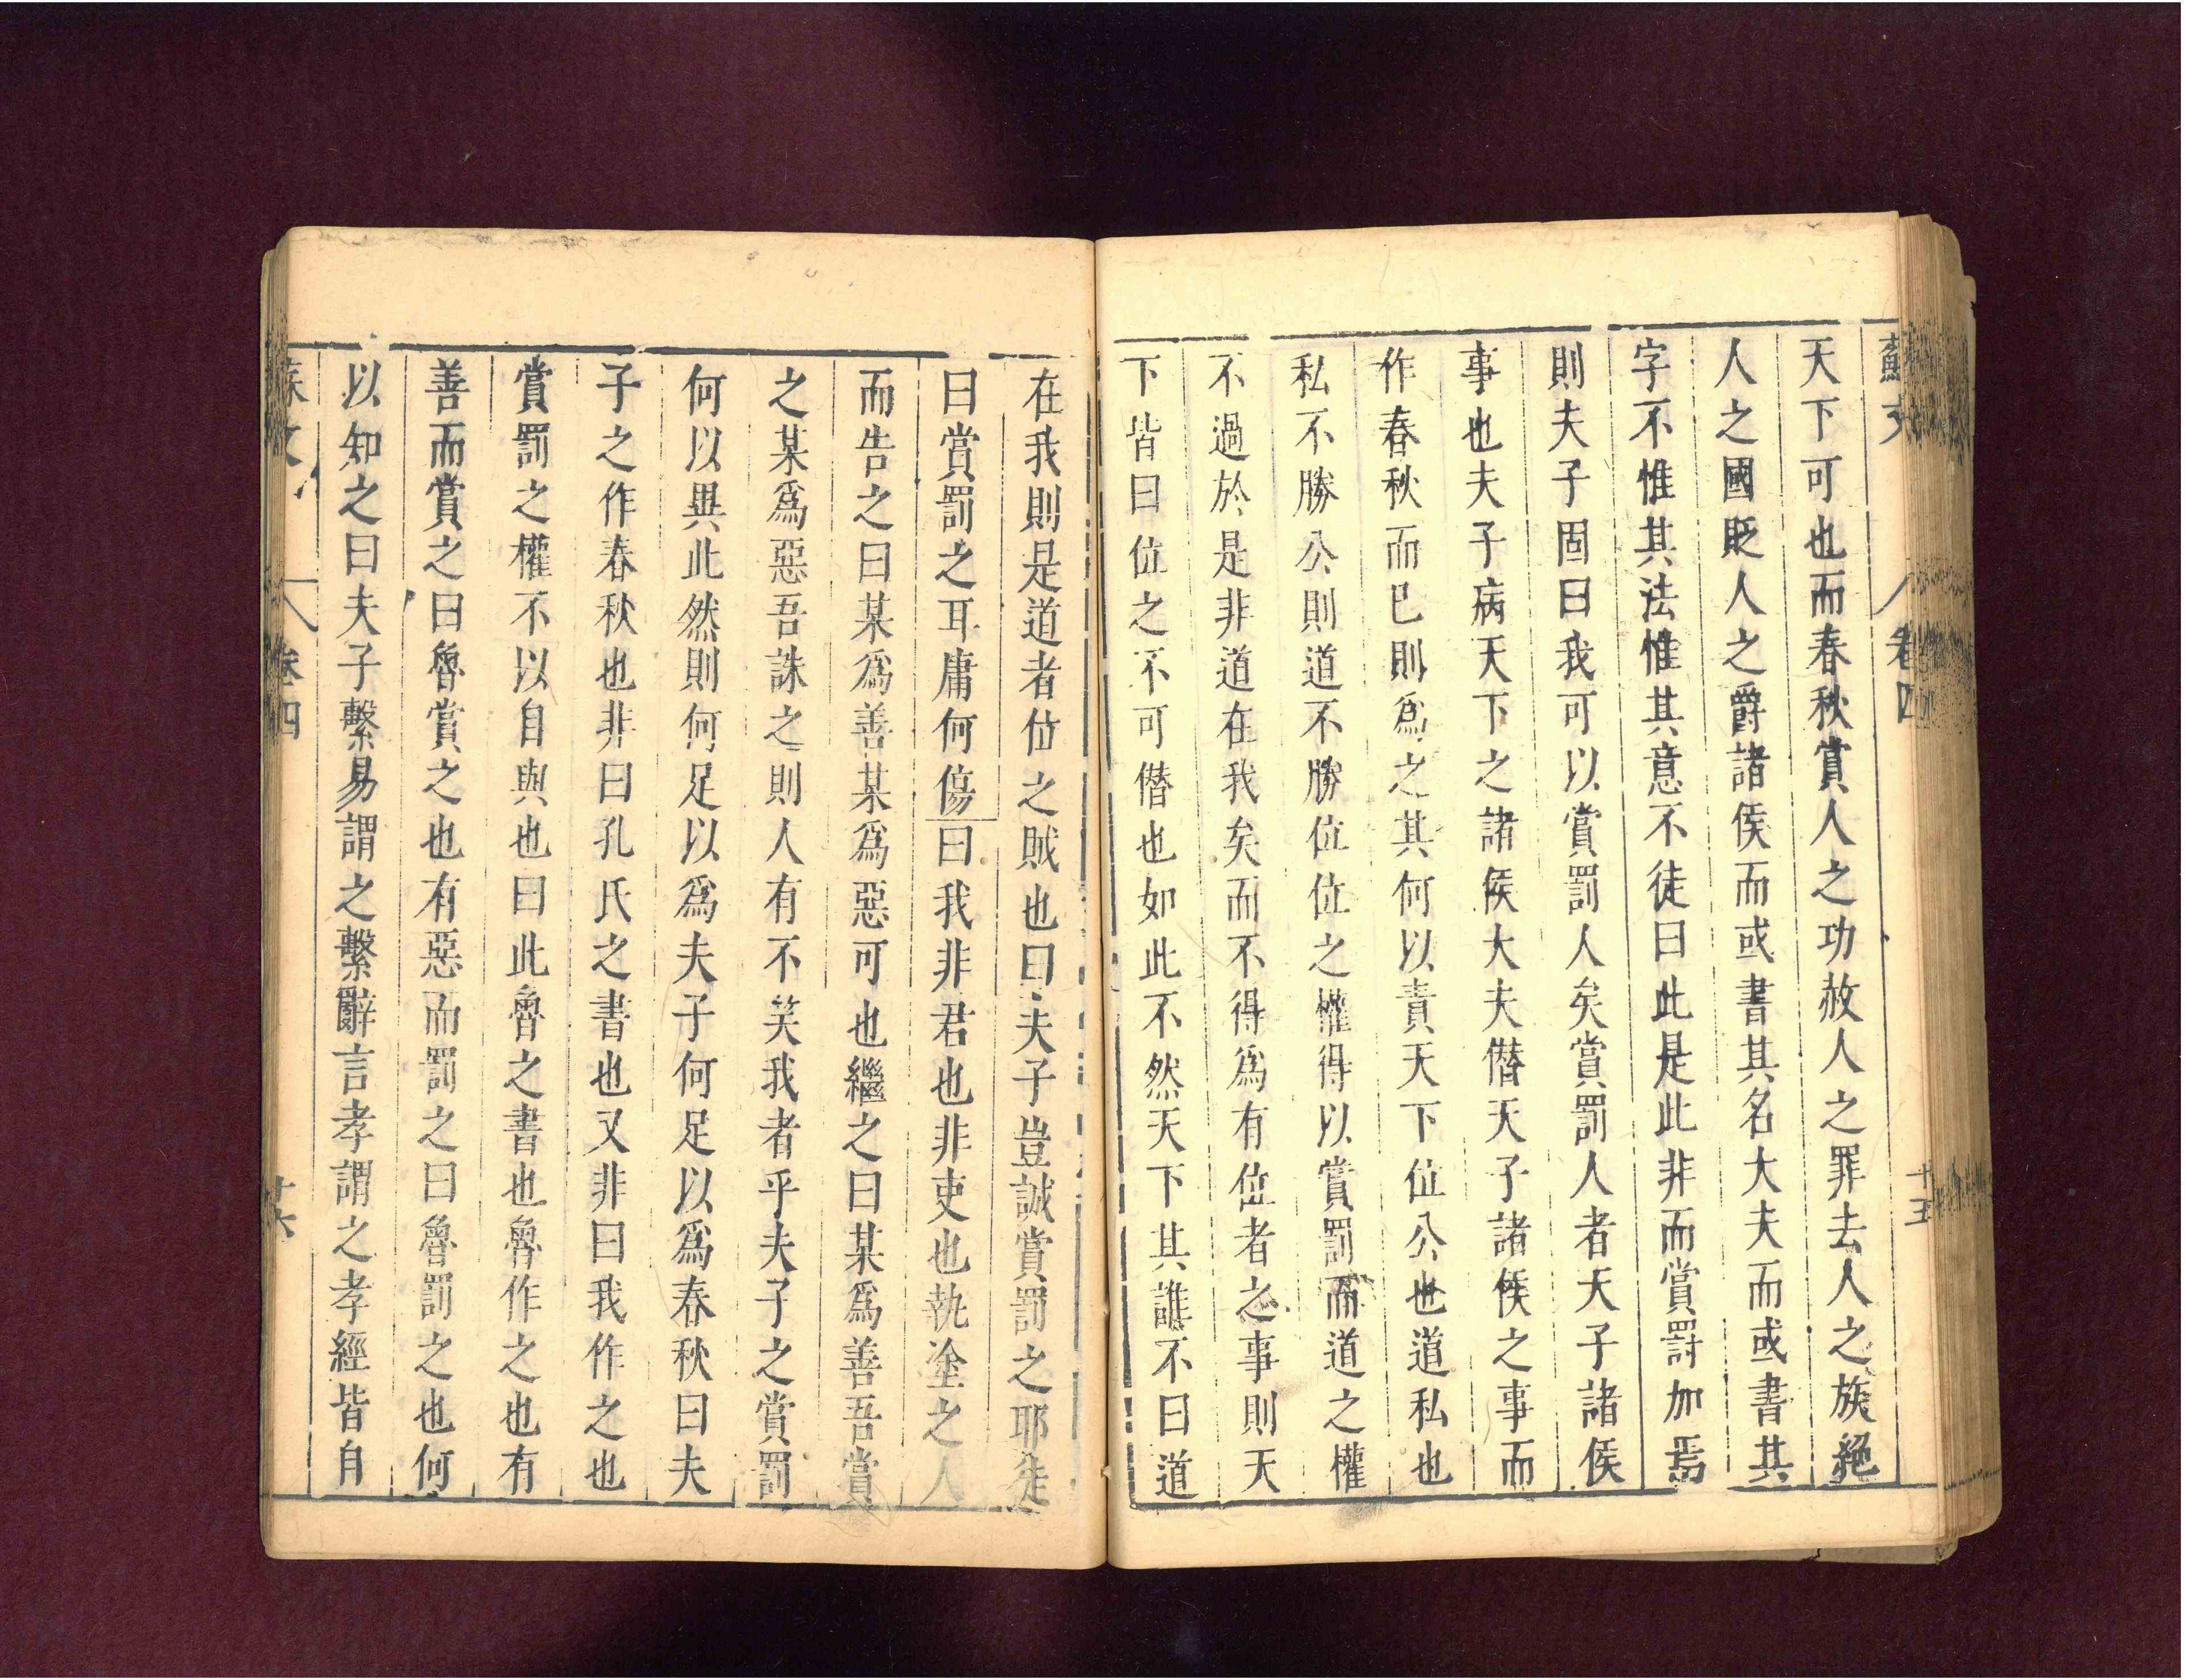 蘇文 卷四 十五
天下可也而春秋賞人之功赦人之罪去人之族絕
人之國貶人之爵諸侯而或書其名大夫而或書其
字不惟其法惟其意不徒曰此是此非而賞罰加焉
則夫子固曰我可以賞罰人矣賞罰人者天子諸侯
事也夫子病天下之諸侯大夫僣天子諸侯之事而
作春秋而已則爲之其何以責天下位公也道私也
私不勝公則道不勝位位之權得以賞罰而道之權
不過於是非道在我矣而不得爲有位者之事則天
下皆曰位之不可僣也如此不然天下其誰不曰道
在我則是道者位之賊也曰夫子豈誠賞罰之耶徒
曰賞罰之耳庸何傷曰我非君也非吏也執塗之人
而告之曰某爲善某爲惡可也繼之曰某爲善吾賞
之某爲惡吾誅之則人有不笑我者乎夫子之賞罰
何以異此然則何足以爲夫子何足以爲春秋曰夫
子之作春秋也非曰孔氏之書也又非曰我作之也
賞罰之權不以自與也曰此魯之書也魯作之也有
善而賞之曰魯賞之也有惡而罰之曰魯罰之也何
以知之曰夫子繫易謂之繫辭言孝謂之孝經皆自
蘇文 卷四 十六